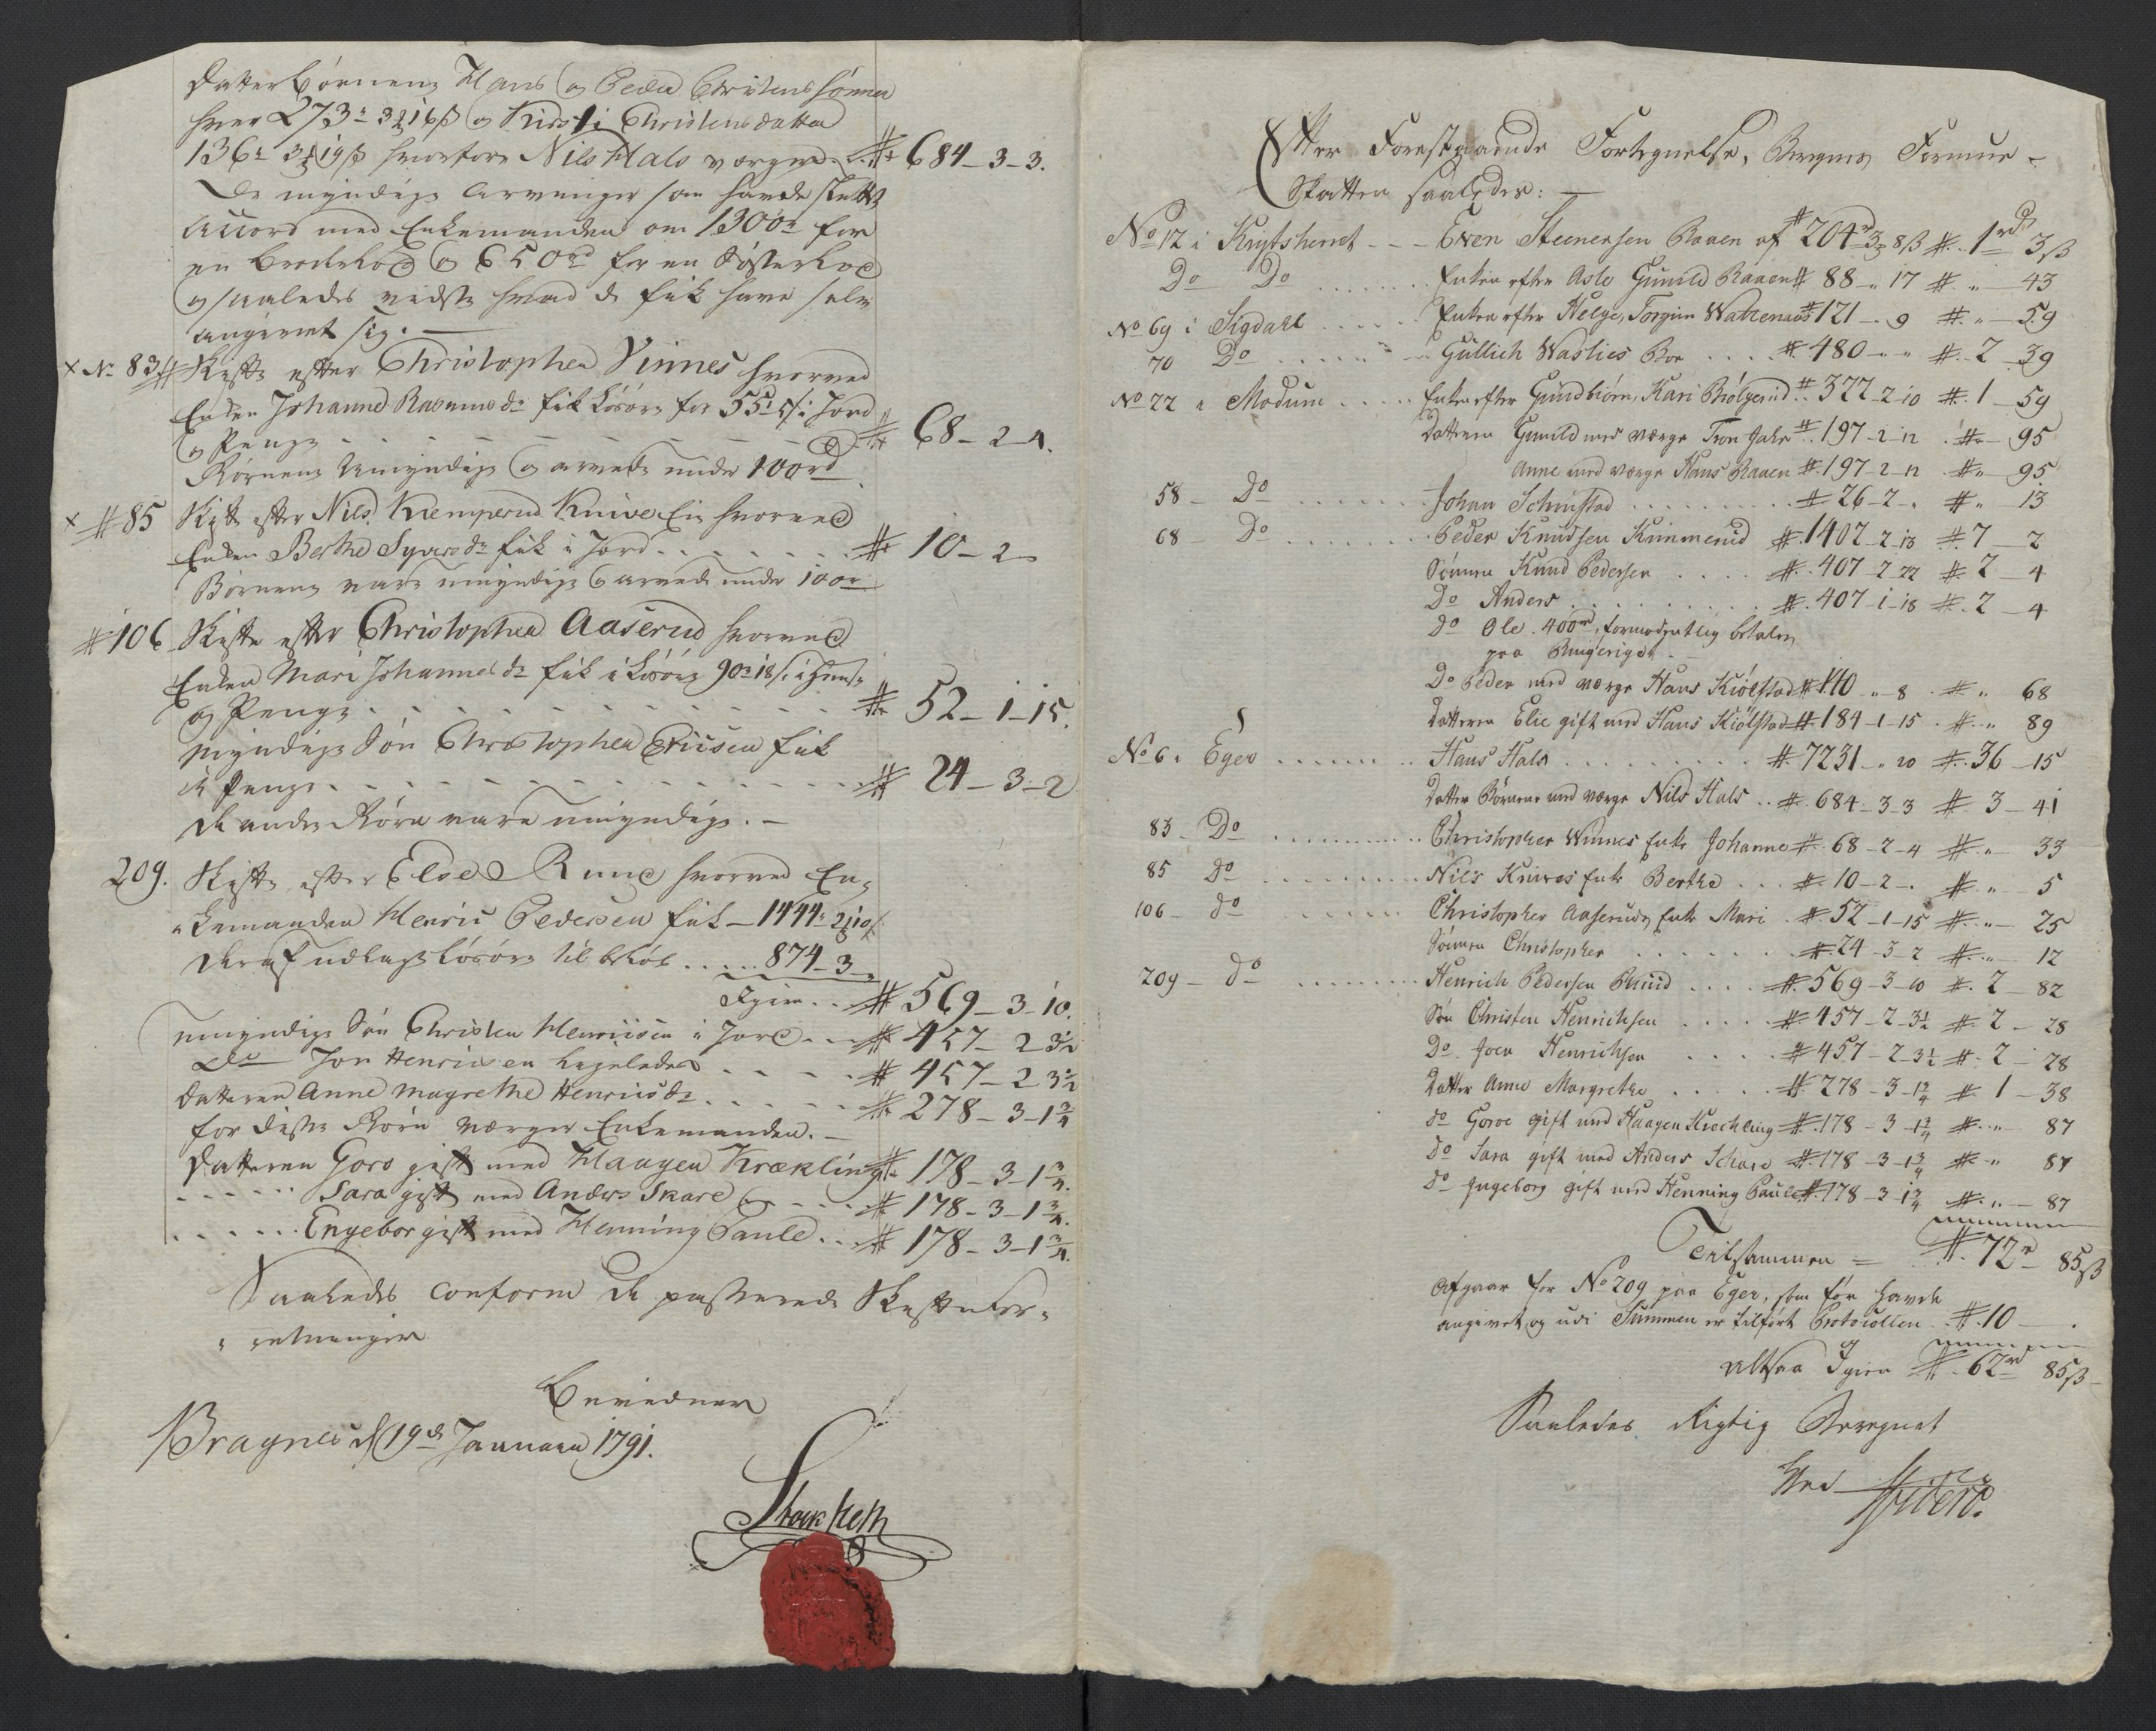 Datter Børnene Hans og Peder Christens sønner
hver 273 r 3 16 ß og Kirsti Christensdatter
136 r 3 19 ß hvorfore Nils Hals værger # 684 - 3 - 3.
De myndige Arvinger som havde sluttet
Accord med Enkemanden om 1300 r for
en Broderlod og 650 rd for en Søsterlod
og saaledes vidste hvad de fik have selv
angivet sig.
x No 83 # Skifte efter Christopher Vinnes hvorved
Enken Johanne Rasmusdr fik Løsøre for 55 i Jord
og Penge # 68 - 2 - 4.
Børnene Umyndige og arvede under 100 rd
x # 85 Skifte efter Nils Kemperud Knive Eie hvorved
Enken Berthe Syversdr fik i Jord # 10 - 2 -
Børnene vare umyndige og arvede under 100 r
# 106 Skifte efter Christopher Aaserud hvorved
Enken Mari Johannesdr fik i Løsøre 90 r 18 ß i
og Penge # 52 - 1 - 15.
Myndige Søn Christopher fik
i Penge # 24 - 3 - 2
De andre Børn vare umyndige. -
209. Skifte efter Else Ruud hvorved En-
kemanden Henric Pedersen fik - 1444 - 2 10 ß
Deraf udlagt Løsøre til 874 - 3 -
Igien # 569 - 3 - 10.
umyndige Søn Christen Henricsen i Jord # 457 - 2 3½
Do Jon Henricsen ligeledes # 457 - 2 3½
Datteren Anne Magrethe Henricsdr # 278 - 3 - 1¾
for disse Børn værger Enkemanden. -
Datteren Goro gift med Haagen Kræckling # 178 - 3 - 1¾.
Sara gift med Anders Skare # 178 - 3 - 1¾.
Engebor gift med Henning Taule # 178 - 3 - 1¾.
Saaledes conform de passerede Skiftefor-
retninger
Bevidner
Bragnes d 19de Januari 1791.
Stockfleth
Efter Forestaaende Fortegnelse, Beregnes Formue-
Skatten saaledes: -
No 12 i Krydsherred - - - Even Steenersen Raaen af # 204 rd 3 8 ß # 1 rd 3 ß
Do Do Enken efter Aslo Gunild Raaen # 88 - " 17 # " - 43
No 69 i Sigdahl Enken efter Helge, Torgim Watnenaas # 121 - " 9 # " - 59
70 Do Gullich Waslies Boe # 480 - " " # 2 39
No 22 i Modum Enken efter Gundbiørn, Kari Bølgerud # 377 - 2 10 # 1 - 59
Datteren Gunild med værge Tron Jahr # 197 - 2 12 # - 95
Anne med værge Hans Raaen # 197 - 2 12 # " 95
58 - Do Johan Schinstad # 26 - 2 - " # " 13
68 - Do Peder Knudsen Kimmerud # 1402 - 2 13 # 7 - 2
Sønnen Knud Pedersen # 407 - 2 22 # 2 - 4
Do Anders # 407 - 1 - 18 # 2 - 4
do Ole 400 rd, formodentlig betales
paa Ringerige. -
Do Peder med værge Hans Kiølstad # 140 " 8 # " 68
Datteren Elie gift med Hans Kiølstad # 184 - 1 - 15 # " 89
No 6 i Eger Hans Hals # 7231 - " 20 # 36 - 15
Datter Børnene med værge Nils Hals # 684 - 3 3 # 3 - 41
83 - Do Christopher Winnes Enke Johanne # 68 - 2 - 4 # " - 33
85 Do Nils Knives Enke Berthe # 10 - 2 - # " - 5
106 - do Christopher Aaseruds Enke Mari # 52 - 1 - 15 # " - 25
Sønnen Christopher # 24 - 3 - 2 # " - 12
209 - do Henrich Pedersen Ruud # 569 - 3 - 10 # 2 - 82
Søn Christen Henrichsen # 457 - 2 - 3½ # 2 - 28
Do Joen Henrichsen # 457 - 2 3½ # 2 - 28
Datter Anne Margrethe # 278 - 3 - 1¾ # 1 - 38
do Goroe gift med Haagen Kræckling # 178 - 3 - 1¾ # " - 87
Do Sara gift med Anders Schare # 178 - 3 - 1¾ # " 87
do Ingeborg gift med Henning Taule # 178 - 3 1¾ # " - 87
Tilsammen = # 72 r - 85 ß
Afgaar for No 209 paa Eger, som før havde
angivet, og udi Summen er tilført Protocollen # 10 - .
altsaa Igien # 62 rd 85 ß
Saaledes Rigtig Beregnet
Ved